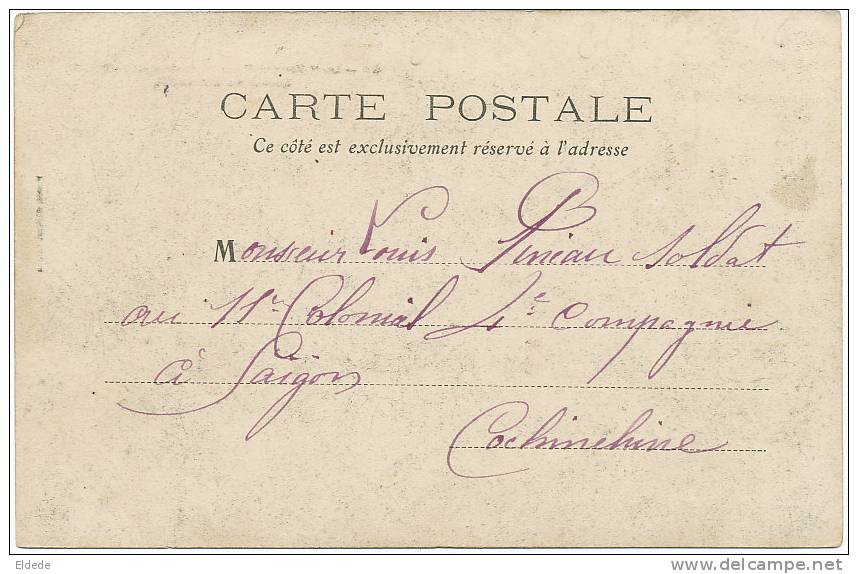 CARTE POSTALE
Ce côté est exclusivement réservé à l'adresse
Monsieur Louis Pineau soldat
au 11e Colonial 4e Compagnie
à Saigon
Cochinchine
Eldede
www.delcampe.net